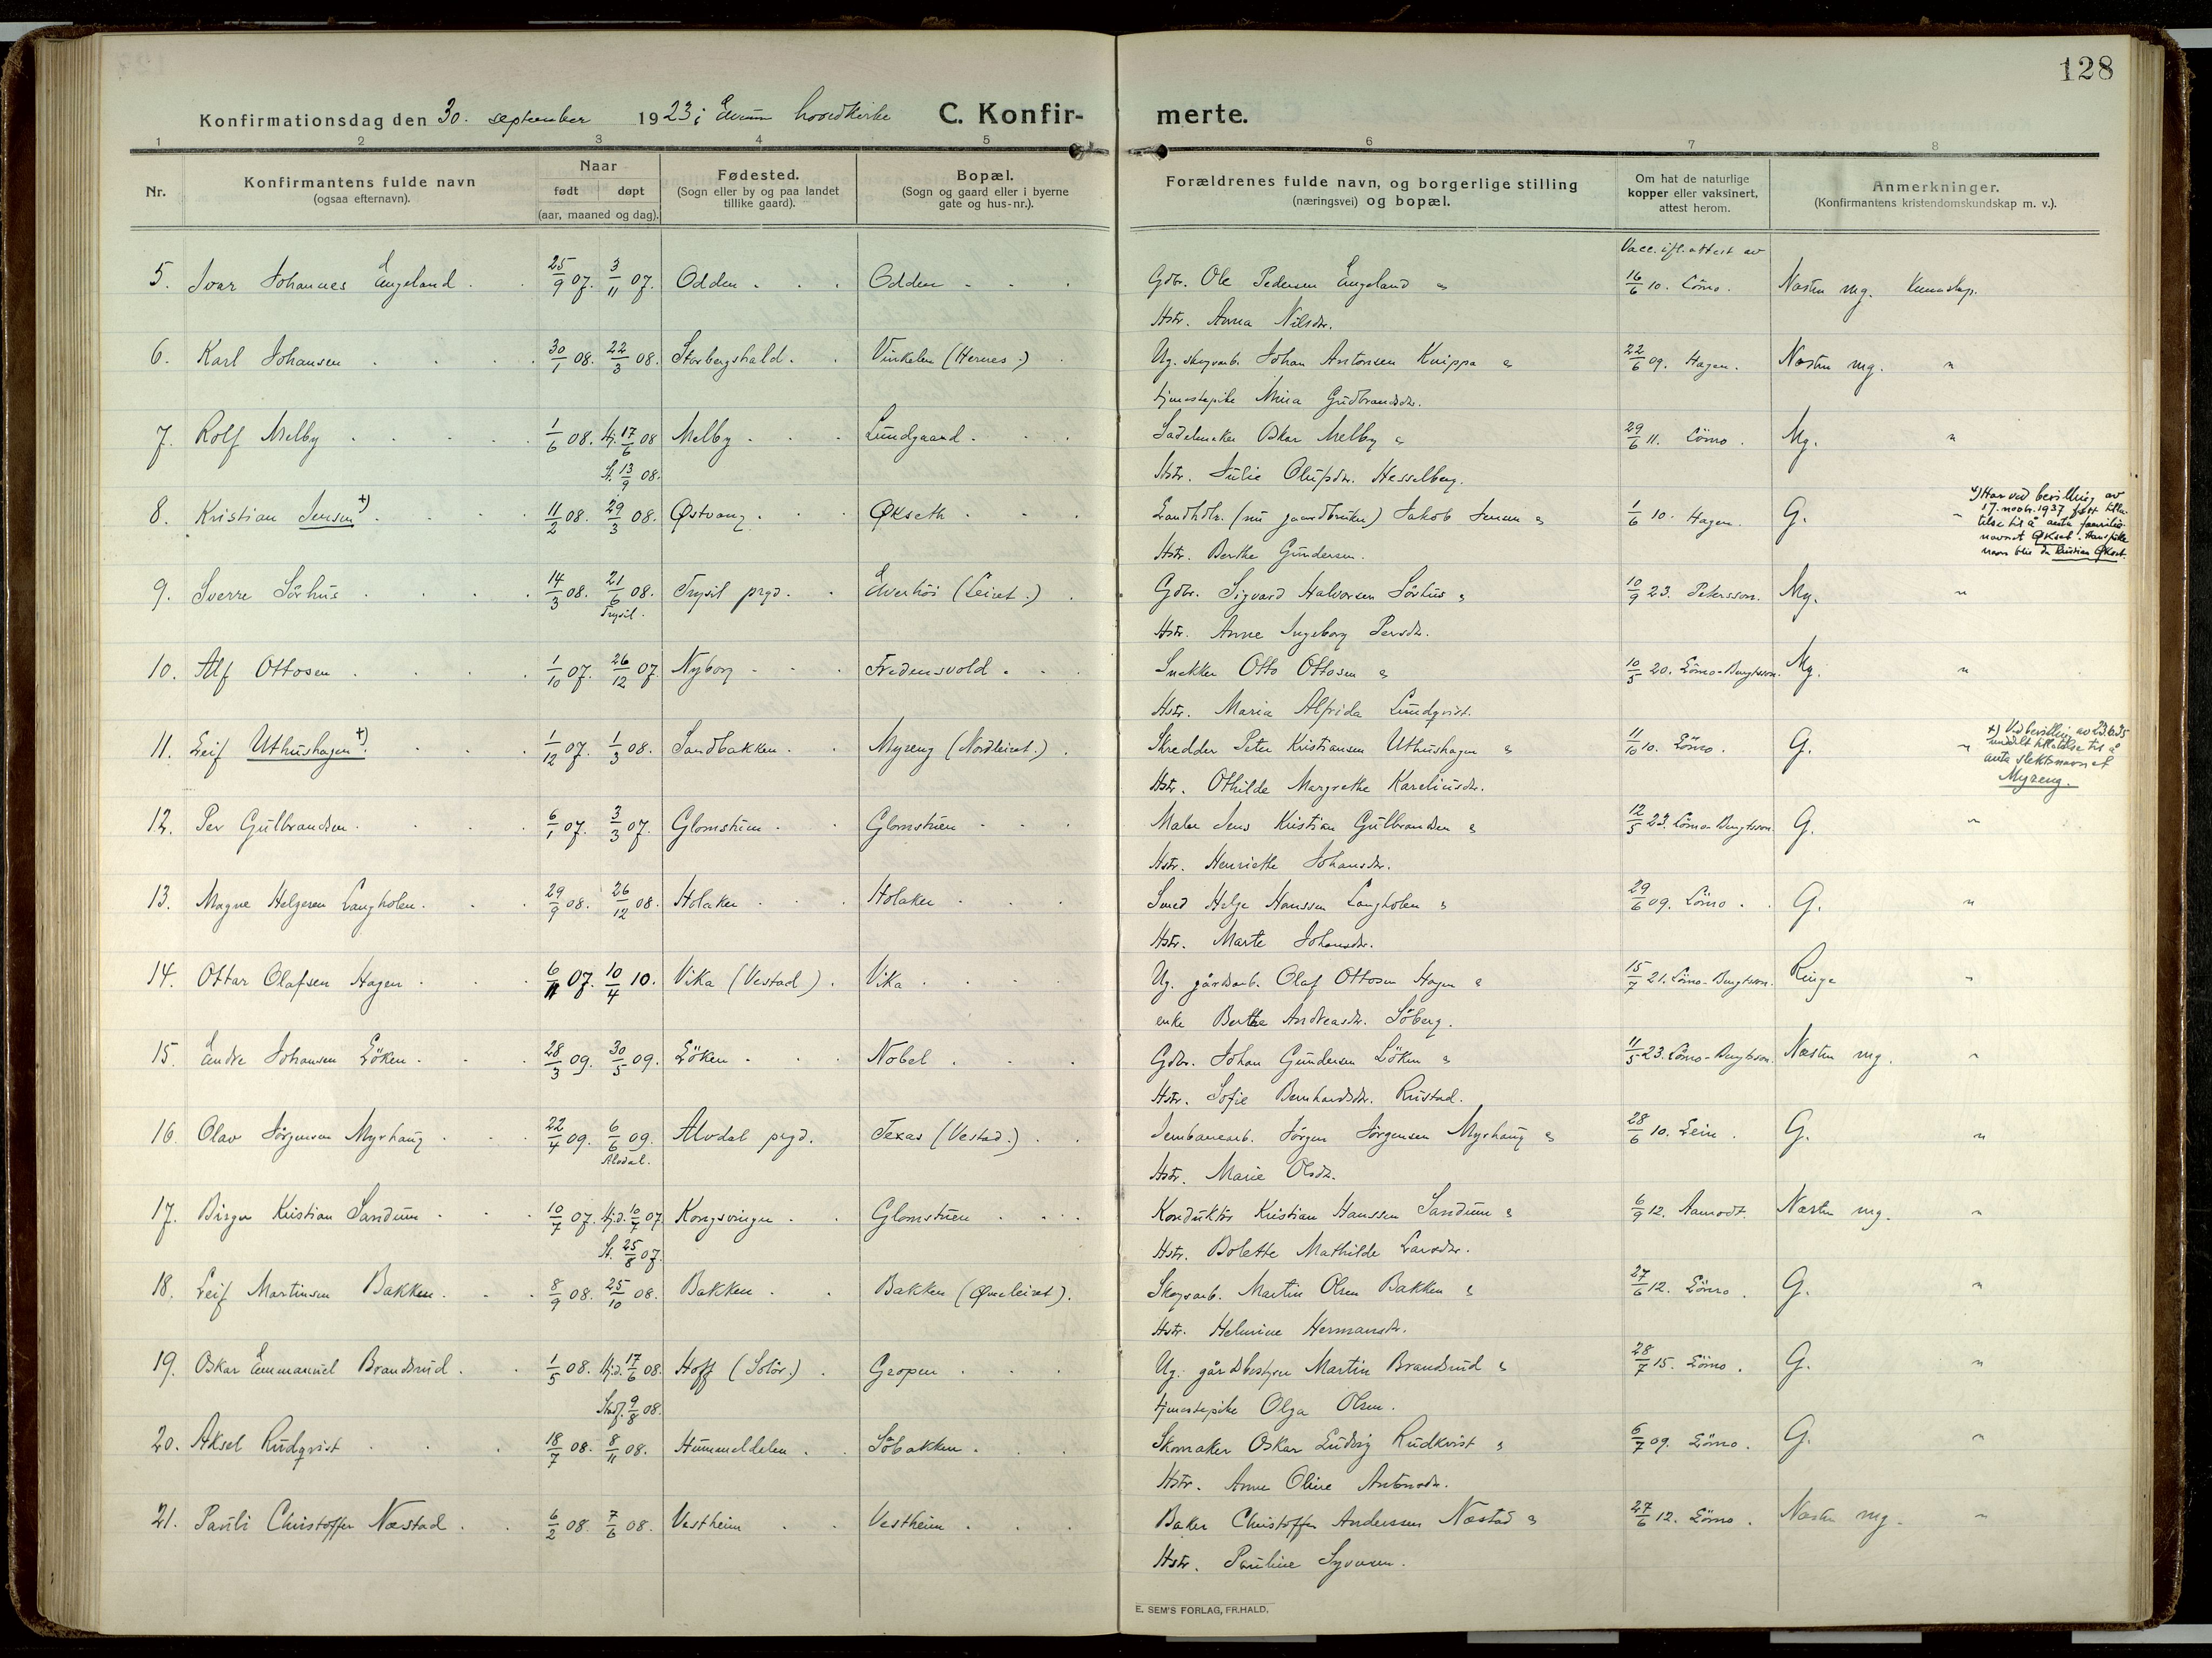 128
Konfirmationsdag den 30. september 1923 i Elverum hovedkirke C. Konfirmerte.
1 2 3 4 5 6 7 8
Nr. Konfirmantens fulde navn (ogsaa efternavn). Naar født døpt (aar, maaned og dag). Fødested. (Sogn eller by og paa landet tillike gaard). Bopæl. (Sogn og gaard eller i byerne gate og hus-nr.). Forældrenes fulde navn, og borgerlige stilling (næringsvei) og bopæl. Om hat de naturlige kopper eller vaksinert, attest herom. Anmerkninger. (Konfirmantens kristendomskundskap m. v.).
Vacc. ifl. attest av
5. Ivar Johannes Engeland 25/9 07. 3/11 07. Odden Odden Gdbr. Ole Pedersen Engeland & 16/6 10. Lömo. Næsten mg. Kunnskap.
Hstr. Anna Nilsdr.
6. Karl Johansen 30/1 08. 22/3 08. Storbergshald. Vinkelen (Hernes.) Ug. skogsarb. Johan Antonsen Knippa & 22/6 09. Hagen. Næsten mg. "
tjenestepike Mina Gudbrandsdr.
7. Rolf Melby 1/6 08. Hj. 17/6 08 Melby Lundgaard. Sadelmaker Oskar Melby & 29/6 11. Lömo. Mg. "
St. 13/9 08. Hstr. Julie Olufsdr. Hesselberg.
8. Kristian Jensen +) 11/2 08. 29/3 08. Østvang Økseth Landhdlr. (nu gaardbruker) Jakob Jensen & 1/6 10. Hagen. G. "
Hstr. Berthe Gundersen.
+) Har ved bevilling av
17. novbr. 1937 fått tilla-
telse til å anta familie-
navnet Økset. Hans fulde
navn blir da Kristian Økset.
9. Sverre Sörhus 14/3 08. 21/6 08. Trysil prgd. Elverhöi (Leiret.) Gdbr. Sigvard Halvorsen Sörhus & 10/9 23. Petersson. Mg. "
Trysil. Hstr. Anne Ingeborg Persdr.
10. Alf Ottosen 1/10 07. 26/12 07. Nyborg Fredensvold. Snekker Otto Ottosen & 10/5 20. Lömo-Bengtsson. Mg. "
Hstr. Maria Alfrida Lundqvist.
11. Leif Uthushagen +) 1/12 07. 1/3 08. Sandbakken. Myreng (Nordleiret.) Skredder Peter Kristiansen Uthushagen & 11/10 10. Lömo. G. "
Hstr. Othilde Margrethe Kareliusdr.
+) Ved bevilling av 23.6.35
meddelt tillatelse til å
anta slektsnavnet
Myreng.
12. Per Gulbrandsen. 6/1 07. 3/3 07. Glomstuen Glomstuen Maler Jens Kristian Gulbrandsen & 12/5 23. Lömo-Bengtsson. G. "
Hstr. Henriette Johansdr.
13. Magne Helgesen Langholen. 29/9 08. 26/12 08. Holaker Holaker Smed Helge Hanssen Langholen & 29/6 09. Lömo. G. "
Hstr. Marte Johansdr.
14. Ottar Olafsen Hagen 6/11 07. 10/4 10. Vika (Vestad). Vika Ug. gårdsarb. Olaf Ottosen Hagen & 15/7 21. Lömo-Bengtsson. Ringe "
enke Berthe Andreasdr. Söberg.
15. Endre Johansen Löken. 28/3 09. 30/5 09. Löken Nobel Gdbr. Johan Gundersen Löken & 11/5 23. Lömo-Bengtsson. Næsten mg. "
Hstr. Sofie Bernhardsdr. Rustad.
16. Olav Jörgensen Myrhaug 22/4 09. 6/6 09. Alvdal prgd. Texas (Vestad.) Jernbanearb. Jörgen Jörgensen Myrhaug & 28/6 10. Lein. G. "
Alvdal. Hstr. Marie Olsdr.
17. Birger Kristian Sandum 10/7 07. Hj.d. 10/7 07 Kongsvinger Glomstuen Konduktör Kristian Hanssen Sandum & 6/9 12. Aamodt. Næsten mg. "
St. 25/8 07. Hstr. Bolette Mathilde Larsdr.
18. Leif Martinsen Bakken 8/9 08. 25/10 08. Bakken Bakken (Øvreleiret). Skogsarb. Martin Olsen Bakken & 27/6 12. Lömo. G. "
Hstr. Helmine Hermansdr.
19. Oskar Emmanuel Brandsrud. 1/5 08. Hj.d. 17/6 08. Hoff (Solör.) Gropen Ug. gårdsbestyrer Martin Brandsrud & 28/7 15. Lömo. G. "
Stadf. 9/8 08. tjenestepike Olga Olsen.
20. Aksel Rudqvist 18/7 08. 8/11 08. Hummeldalen Söbakken. Skomaker Oskar Ludvig Rudkvist & 6/7 09. Lömo. G. "
Hstr. Anne Oline Antonsdr.
21. Pauli Christoffer Næstad 6/2 08. 7/6 08. Vestheim Vestheim Baker Christoffer Anderssen Næstad & 27/6 12. Lömo. Næsten mg. "
Hstr. Pauline Syversen.
E. SEM'S FORLAG, FR.HALD.